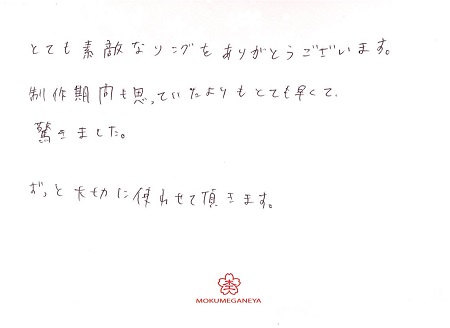 とても素敵なリングをありがとうございます。
制作期間も思っていたよりもとても早くて、
驚きました。
ずっと大切に使わせて頂きます。
MOKUMEGANEYA